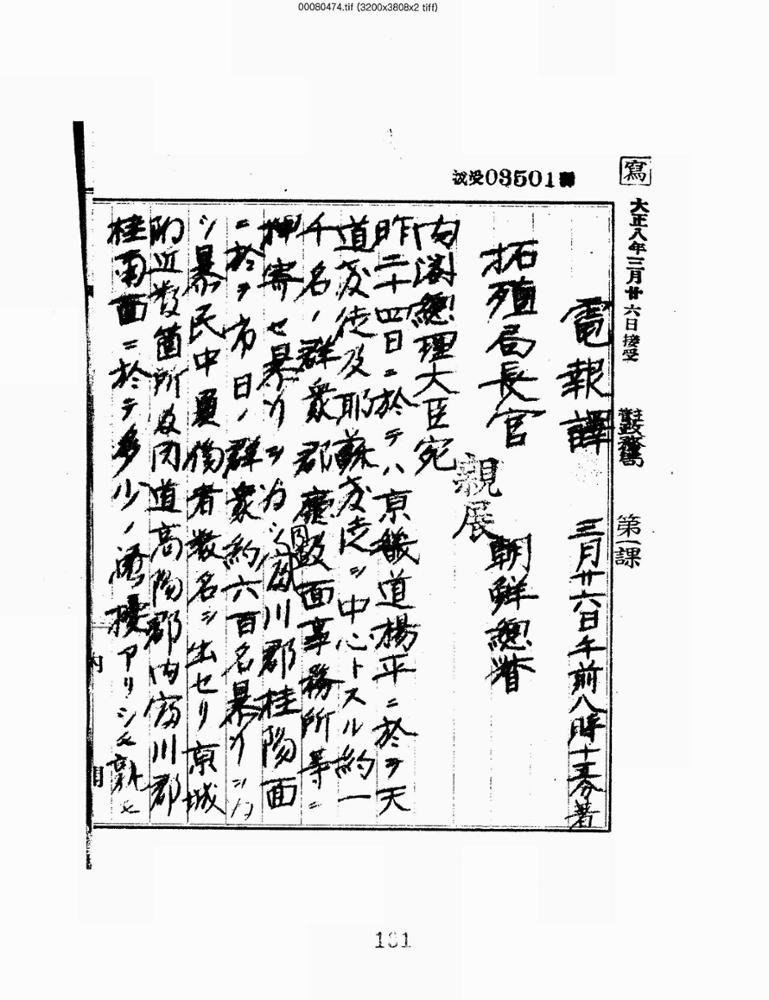 00080474.tif (3200x3808x2 tiff)
寫
大正八年三月廿六日接受
第一課
03501
電報譯 三月廿六日午前八時十五分著
拓殖局長官 朝鮮總督
親展
內閣總理大臣宛
昨二十四日ニ於テハ京畿道楊平ニ於テ天
道敎徒及耶蘇敎徒ヲ中心トスル約一
千名ノ群衆郡廳及面事務所等ニ
押寄セ暴行ヲ為シ富川郡桂陽面
ニ於テ市日ノ群衆約六百名暴行シ
シ暴民中負傷者數名ヲ出セリ京城
附近數箇所及同道高陽郡內富川郡
桂南面ニ於テ多少ノ騷擾アリシモ
內
用
181